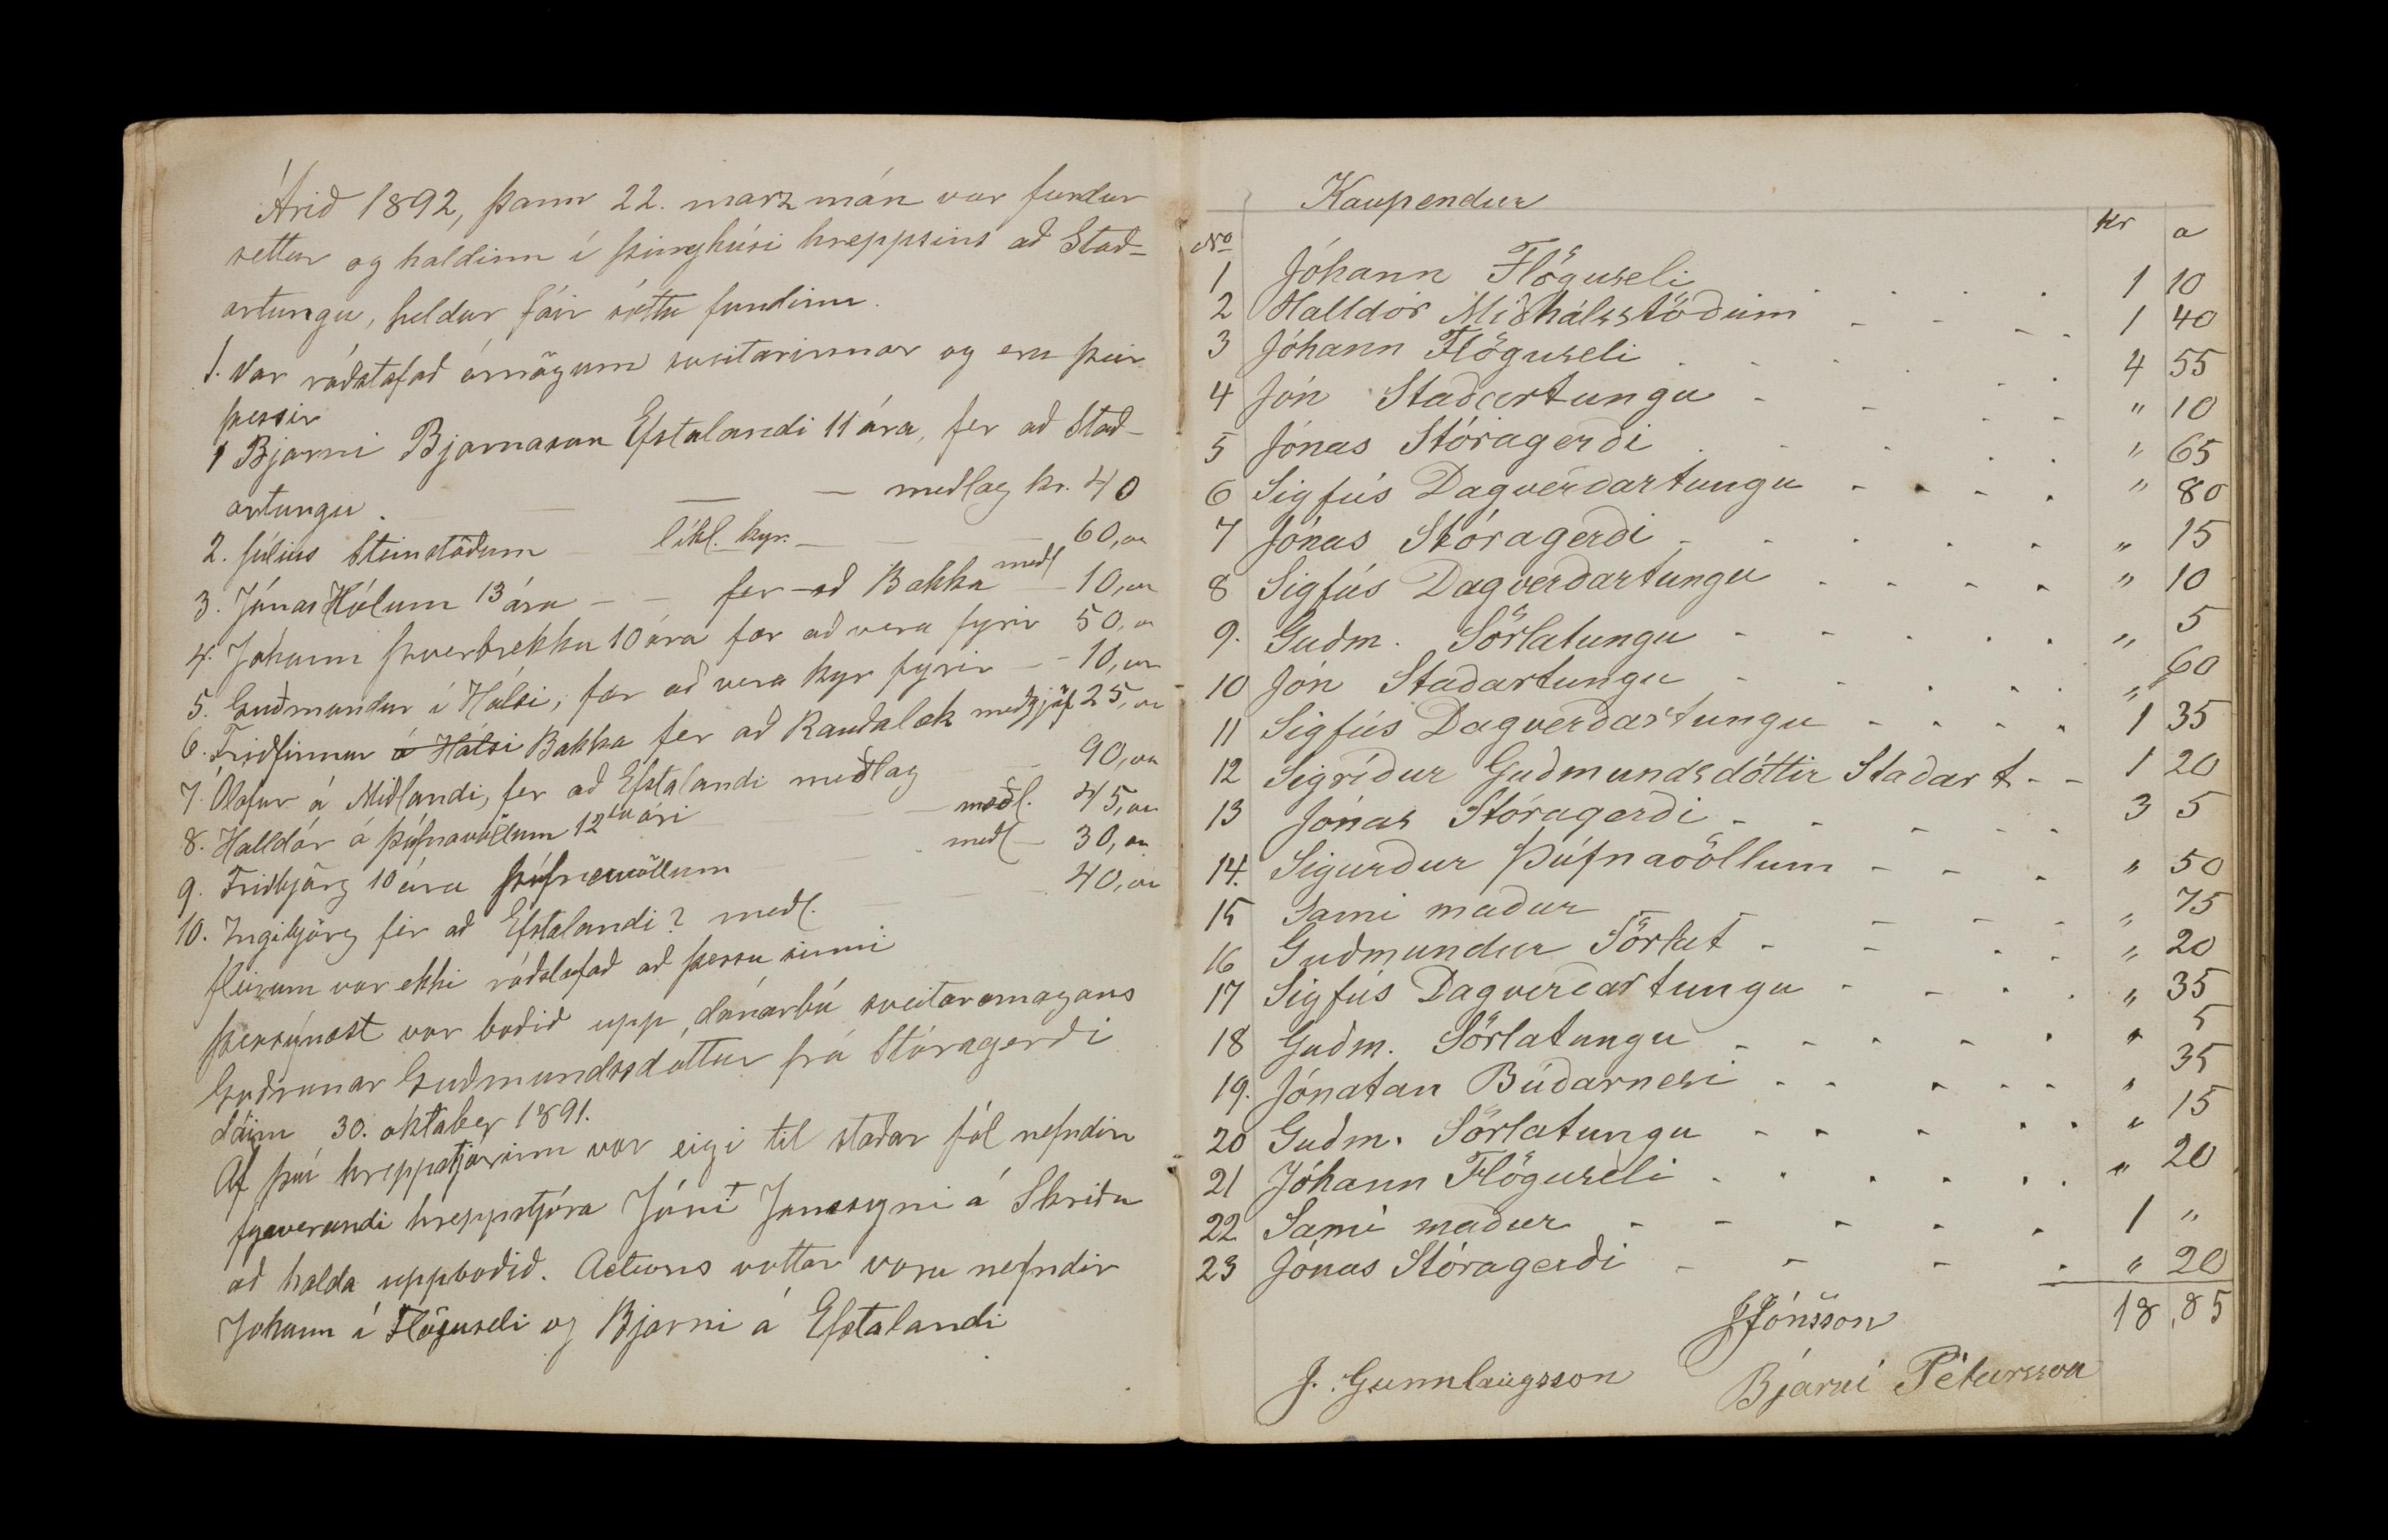 Árið 1892, þann 22. marz mán var fundur
settur og haldinn í þinghúsi hreppsins að Stað-
artungu, heldur fáir sóttu fundinn.
1. Var ráðstafað ómögum sveitarinnar og eru þeir
þessir
1 Bjarni Bjarnason Efstalandi 11 ára, fer að Stað-
artungu. — — — meðlag kr. 40
2. Júlíus Steinstöðum — líkl. kyr. — — — 60,00
3. Jónas Hólum 13 ára — — fer að Bakka meðl — 10,00
4. Jóhann Þverbrekku 10 ára fær að vera fyrir 50,00
5. Guðmundur í Hálsi, fær að vera kyr fyrir — 10,00
6. Friðfinnur á Hálsi Bakka fer að Rauðalæk meðgjöf 25,00
7. Ólafur á Miðlandi, fer að Efstalandi meðlag — 90,00
8. Halldór á Þúfnavöllum 12 ári — meðl. 45,00
9. Friðbjörg 10 ára Þúfnavöllum — meðl — 30,00
10. Ingibjörg fer að Efstalandi? meðl. — 40,00
fleirum var ekki ráðstafað að þessu sinni
Þessunæst var boðið upp dánarbú sveitaromagans
Guðrunar Guðmundsdóttur frá Stóragerði
dáin 30. oktober 1891.
Af því hreppstjórinn var eigi til staðar fól nefndin
fyrverandi hreppstjóra Jóni Jonssyni á Skriðu
að halda uppboðið. Actions vottar voru nefndir
Johann í Flöguseli og Bjarni á Efstalandi
Kaupendur
No kr a
1 Jóhann Flöguseli 1 10
2 Halldór Miðhálsstöðum 1 40
3 Jóhann Flöguseli 4 55
4 Jón Staðartungu " 10
5 Jónas Stóragerði " 65
6 Sigfús Dagverðartungu " 80
7 Jónas Stóragerði " 15
8 Sigfús Dagverðartungu " 10
9. Guðm. Sörlatungu " 5
10 Jón Staðartungu " 60
11 Sigfús Dagverðartungu 1 35
12 Sigríður Guðmundsdóttir Staðart 1 20
13 Jónas Stóragerði 3 5
14. Sigurður Þúfnavöllum " 50
15 Sami maður " 75
16 Guðmundur Sörlat " 20
17 Sigfús Dagverðartungu " 35
18 Guðm. Sörlatungu " 5
19. Jónatan Búðarnesi " 35
20 Guðm. Sörlatungu " 15
21 Jóhann Flöguseli " 20
22 Sami maður 1 "
23 Jónas Stóragerði " 20
JJónsson 18,85
J. Gunnlaugsson Bjarni Pétursson